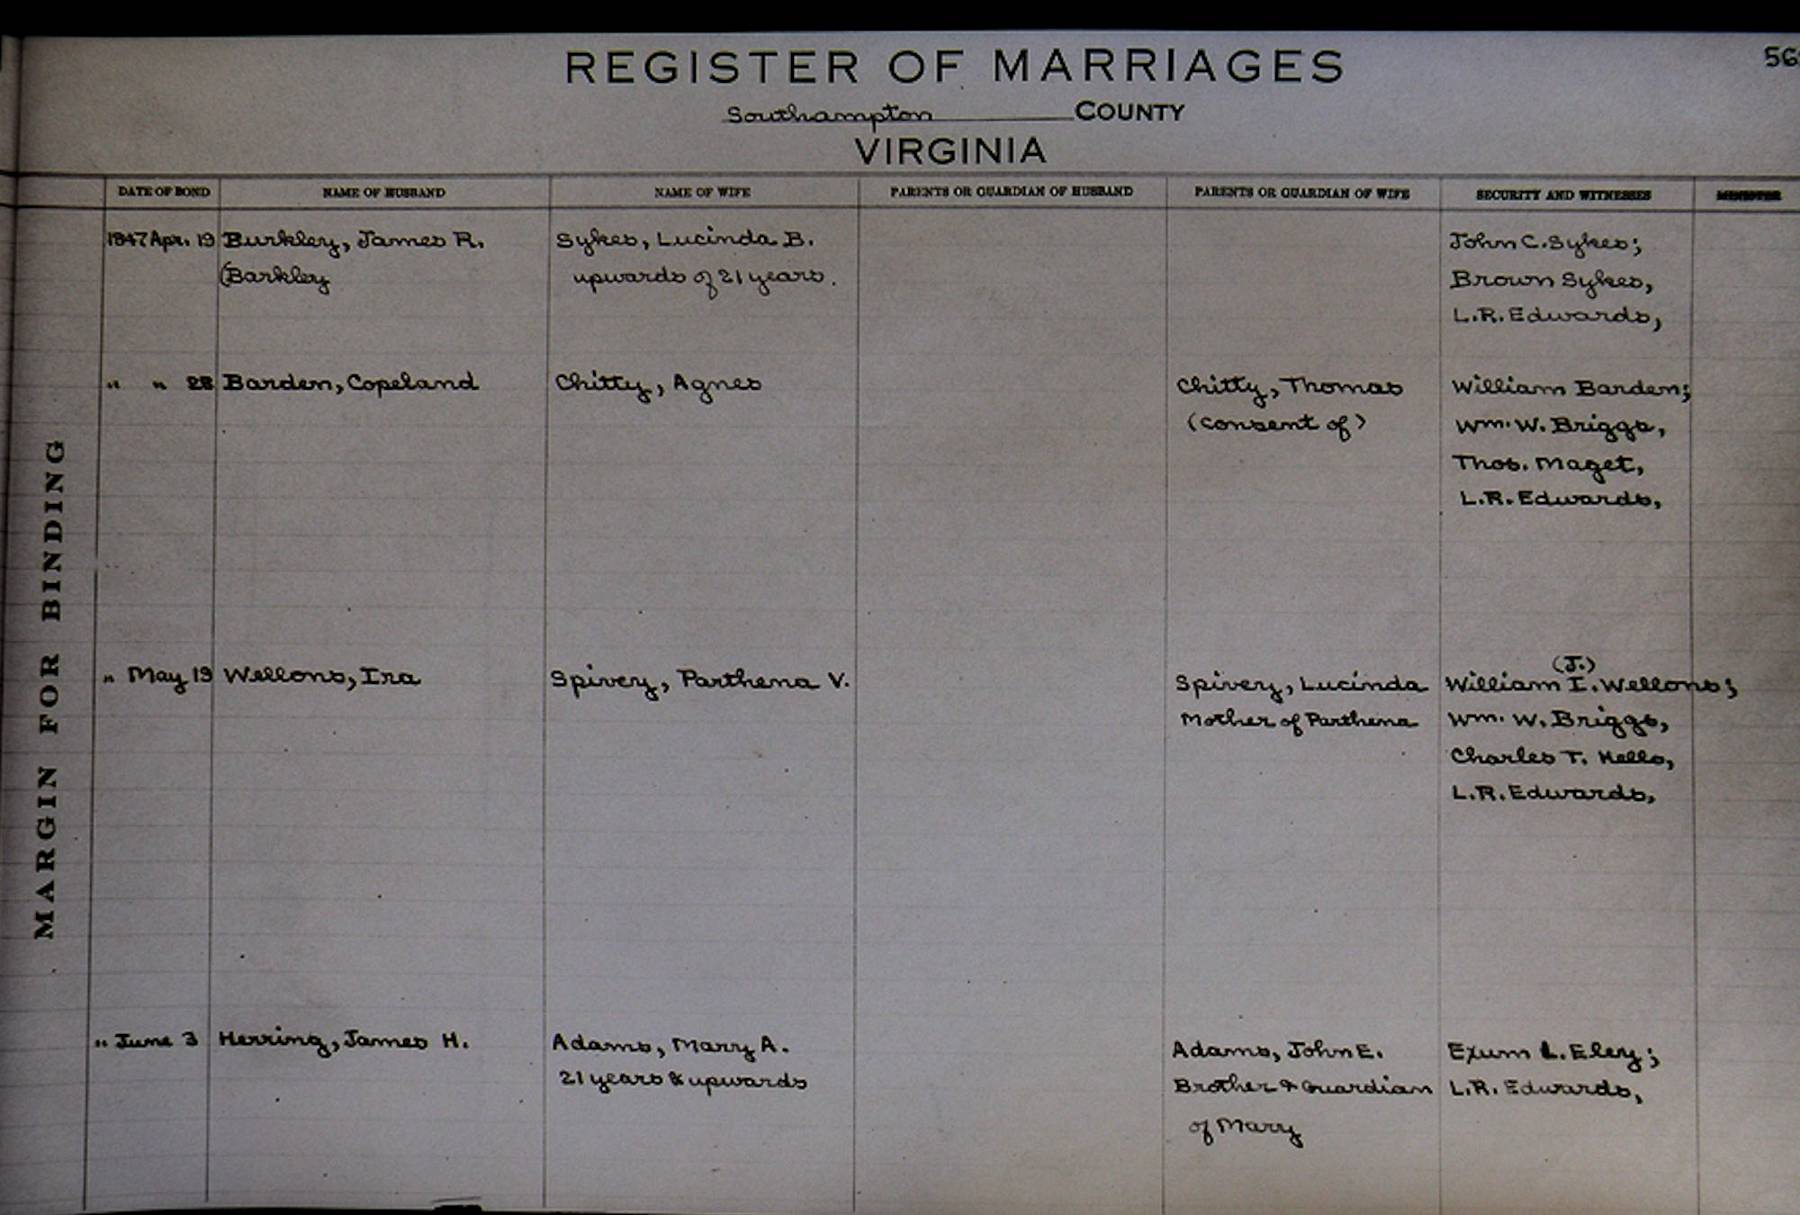 REGISTER OF MARRIAGES
56
Southampton COUNTY
VIRGINIA
DATE OF BOND NAME OF HUSBAND NAME OF WIFE PARENTS OR GUARDIAN OF HUSBAND PARENTS OR GUARDIAN OF WIFE SECURITY AND WITNESSES MINISTER
1847 Apr. 19 Burkley, James R. Sykes, Lucinda B. John C. Sykes;
(Barkley upwards of 21 years. Brown Sykes,
L.R. Edwards,
" " 28 Barden, Copeland Chitty, Agnes Chitty, Thomas William Barden;
(consent of) Wm. W. Briggs,
Thos. Maget,
L.R. Edwards,
(J.)
" May 19 Wellons, Ira Spivey, Parthena V. Spivey, Lucinda William I. Wellons;
Mother of Parthena Wm. W. Briggs,
Charles T. Hells,
L.R. Edwards,
" June 3 Herring, James H. Adams, Mary A. Adams, John E. Exum L. Eley;
21 years & upwards Brother & Guardian L.R. Edwards,
of Mary
MARGIN FOR BINDING